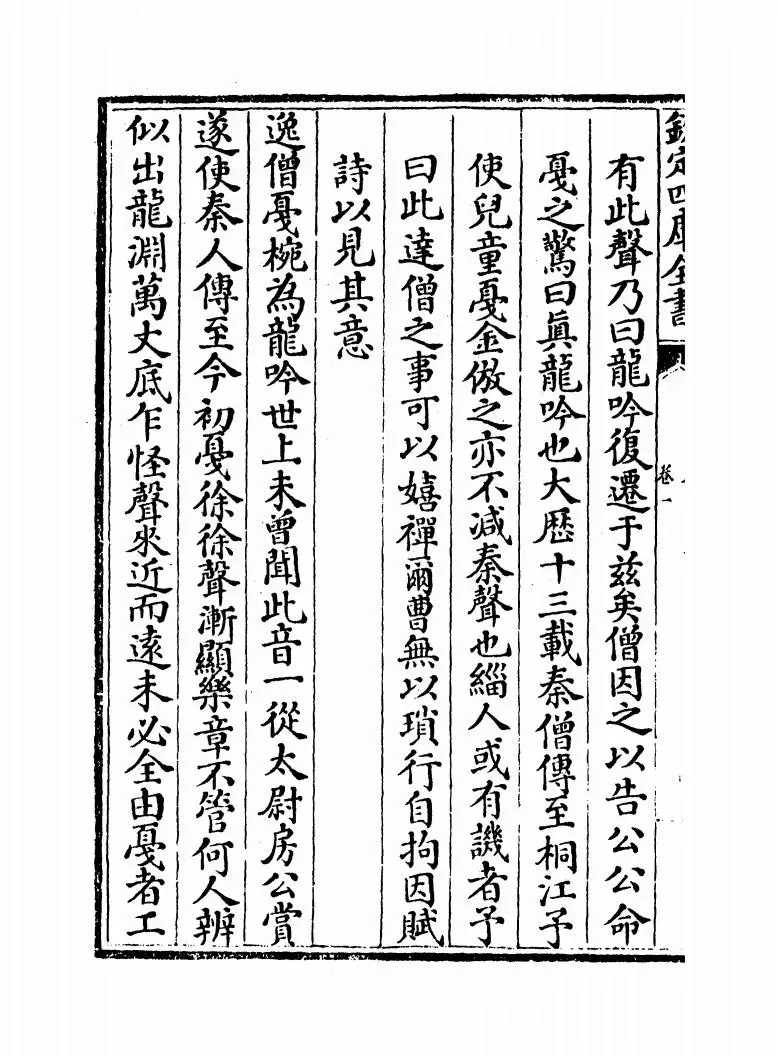 欽定四庫全書
卷一
有此聲乃曰龍吟復遷于兹矣僧因之以告公公命
戞之驚曰真龍吟也大歷十三載秦僧傳至桐江予
使兒童戞金倣之亦不減秦聲也緇人或有譏者予
曰此達僧之事可以嬉禪爾曹無以瑣行自拘因賦
詩以見其意
逸僧戞椀為龍吟世上未曾聞此音一從太尉房公賞
遂使秦人傳至今初戞徐徐聲漸顯樂章不管何人辨
似出龍淵萬丈底乍怪聲來近而遠未必全由戞者工